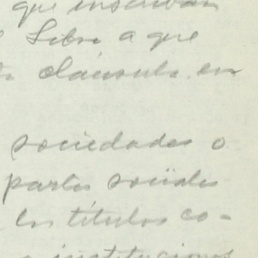 que inscriban
Libro a que
cláusula en
sociedades o
partes sociales
los títulos co-
instituciones